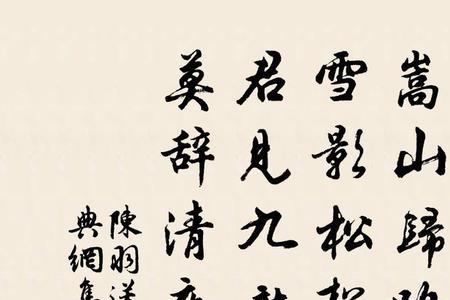 嵩山歸
雪影松
君見九
莫辭清
陳羽送
典網